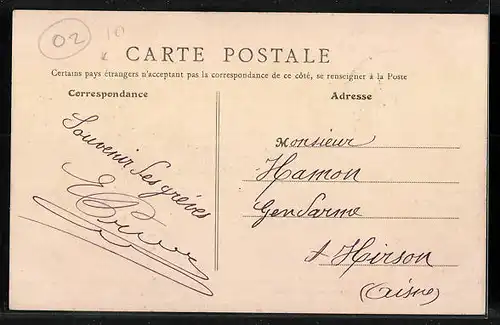 02
CARTE POSTALE
Certains pays étrangers n'acceptant pas la correspondance de ce côté, se renseigner à la Poste
Correspondance
Adresse
Souvenir des grèves
Monsieur
Hamon
Gendarme
à Hirson
(Aisne)